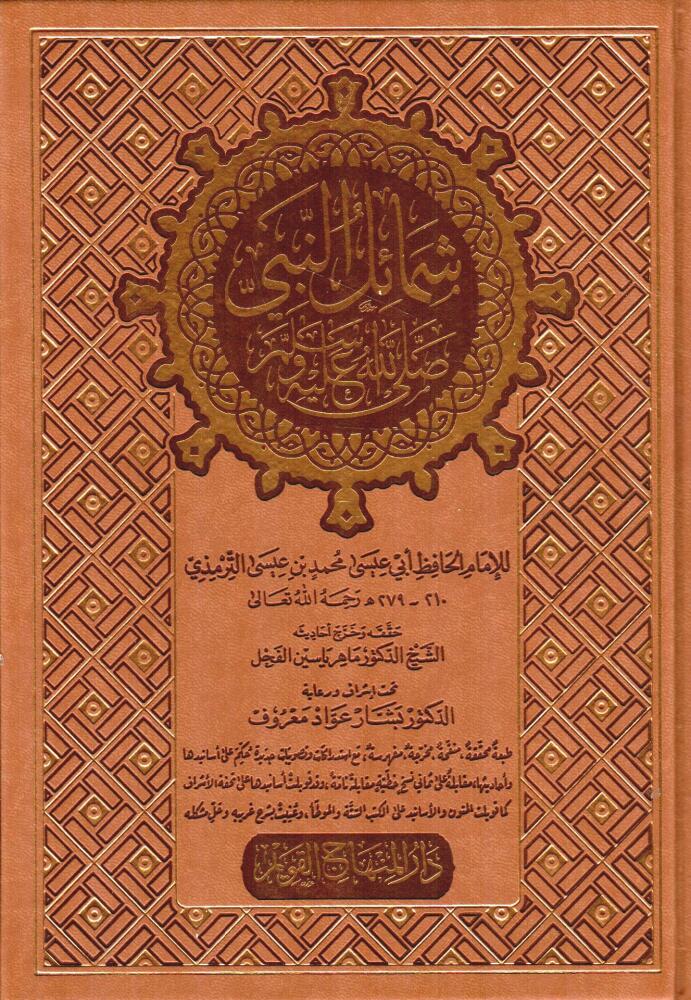 شمائل النبي
صلى الله عليه وسلم
للإمام الحافظ أبي عيسى محمد بن عيسى الترمذي
٢١٠ - ٢٧٩ هـ رحمه الله تعالى
حققه وخرج أحاديثه
الشيخ الدكتور ماهر ياسين الفحل
تحت إشراف ورعاية
الدكتور بشار عواد معروف
طبعة محققة، منقحة، مخرجة، مفهرسة، مع استدراكات وتصويبات جديدة حكم على أسانيدها
وأحاديثها، مقابلة على ثماني نسخ خطية مقابلة تامة، وقد قوبلت أسانيدها على تحفة الأشراف
كما قوبلت المتون والأسانيد على الكتب الستة والموطأ، وعنيت بشرح غريبه وحل مشكله
دار المنهاج القويم